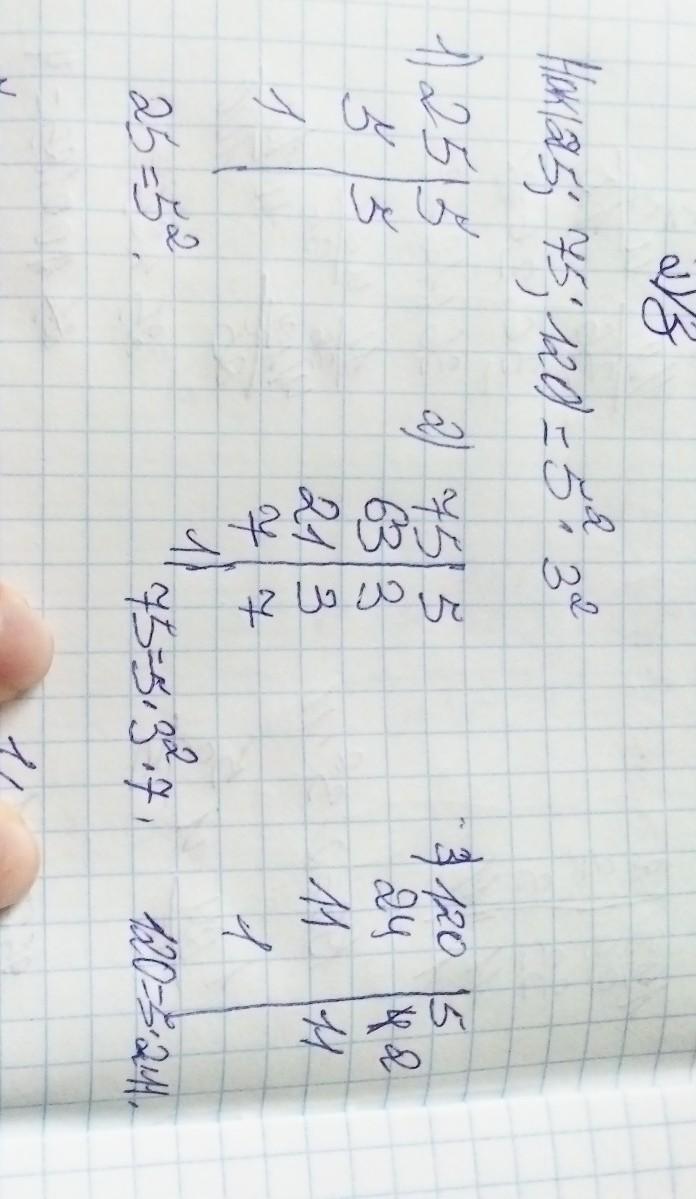 2)
НОК(25; 75; 120) = 5² · 3²
1) 25 | 5
5 | 5
1
25 = 5².
2) 75 | 5
63 | 3
21 | 3
7 | 7
1
75 = 5 · 3² · 7.
3) 120 | 5
24 | 2
11 | 11
1
120 = 5 · 2 11.